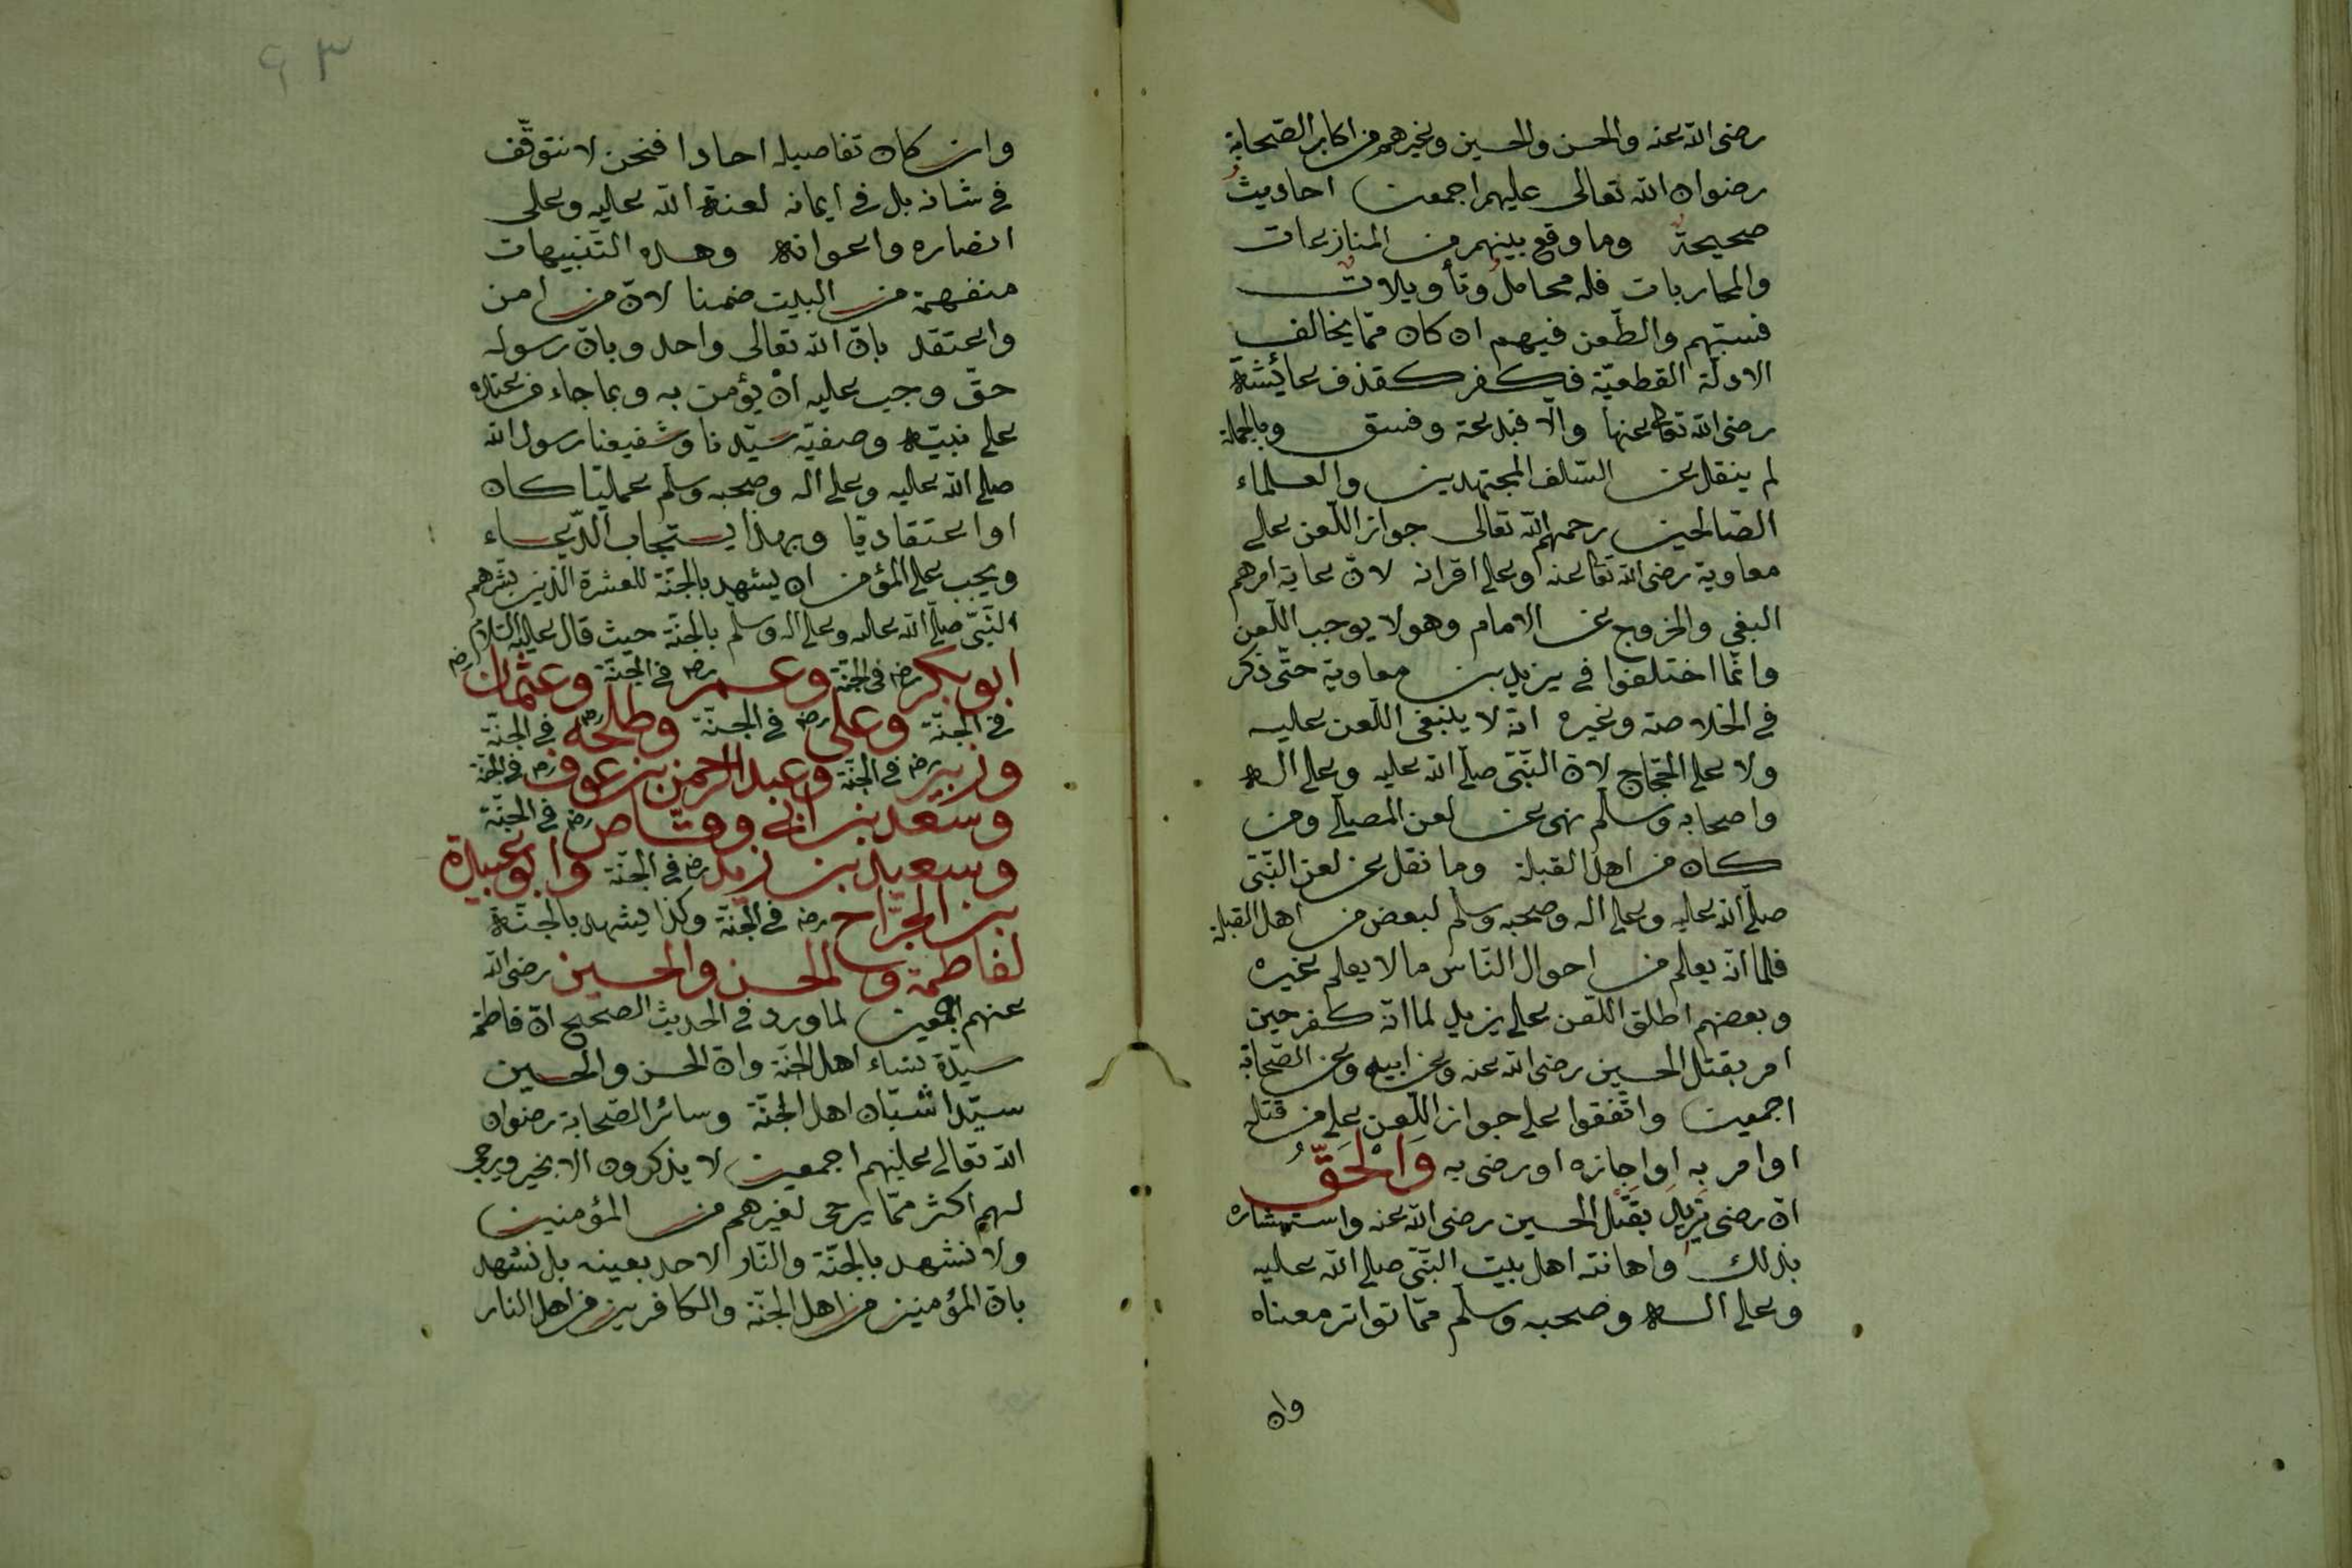 رضى الله عنه والحسن والحسين وغيرهم من اكابر الصّحابة
رضوان الله تعالى عليهم اجمعين احاديثُ
صحيحةٌ وما وقع بينهم من المنازعات
والمحاربات فله محاملُ وتأويلاتٌ
فسبّهم والطّعن فيهم ان كان ممّا يخالف
الادلّة القطعيّة فكفر كقذف عائشة
رضى الله تعالى عنها والّا فبدعة وفسق وبالجملة
لم ينقل عن السّلف المجتهدين والعلماء
الصّالحين رحمهم الله تعالى جواز اللّعن على
معاوية رضى الله تعالى عنه او على اقرانه لانّ غاية امرهم
البغى والخروج عن الامام وهو لا يوجب اللّعن
وانّما اختلفوا في يزيد بن معاوية حتّى ذكر
في الخلاصة وغيره انّه لا ينبغى اللّعن عليه
ولا على الحجّاج لانّ النّبّى صلّى الله عليه وعلى اله
واصحابه وسلّم نهى عن لعن المصلّى ومن
كان من اهل القبلة وما نقل عن لعن النّبّى
صلّى الله عليه وعلى اله وصحبه وسلّم لبعض من اهل القبلة
فلما انّه يعلم من احوال النّاس ما لا يعلم غيره
وبعضهم اطلق اللّعن على يزيد لما انّه كفر حين
امر بقتل الحسين رضى الله عنه وعن ابيه وعن الصّحابة
اجمعين واتّفقوا على جواز اللّعن على من قتله
او امر به او اجازه او رضى به وَالْحَقُّ
انّ رضى يزيد بقتل الحسين رضى الله عنه واستبشاره
بذلك واهانته اهل بيت النّبّى صلّى الله عليه
وعلى اله وصحبه وسلّم ممّا تواتر معناه
وان
٩٣
وان كان تفاصيله احادا فنحن لا نتوقّف
في شانه بل في ايمانه لعنة الله عليه وعلى
انصاره واعوانه وهذه التّنبيهات
منفهمة من البيت ضمنا لانّ من امن
واعتقد بانّ الله تعالى واحد وبانّ رسوله
حقّ وجب عليه انْ يؤمن به وبما جاء من عنده
على نبيّه وصفيّه سيّدنا وشفيعنا رسول الله
صلّى الله عليه وعلى اله وصحبه وسلّم عمليّا كان
او اعتقاديّا وبهذا يستجاب الدّعاء
ويجب على المؤمن ان يشهد بالجنّة للعشرة الذين بشّرهم
النّبّى صلّى الله عليه وعلى اله وسلّم بالجنّة حيث قال عليه السّلام
ابو بكر رضه في الجنّة وعمر رضه في الجنّة وعثمان رضه
في الجنّة وعلى رضه في الجنّة وطلحه رضه في الجنّة
وزبير رضه في الجنّة وعبد الرحمن بن عوف رضه في الجنّة
وسعد بن ابى وقّاص رضه في الجنّة
وسعيد بن زيد رضه في الجنّة وابو عبيدة
بن الجرّاح رضه في الجنّة وكذا يشهد بالجنّة
لفاطمة والحسن والحسين رضى الله
عنهم اجمعين لما ورد في الحديث الصحيح انّ فاطمة
سيّدة نساء اهل الجنّة وانّ الحسن والحسين
سيّدا شبّان اهل الجنّة وسائر الصّحابة رضوان
الله تعالى عليهم اجمعين لا يذكرون الا بخير ويرجى
لهم اكثر ممّا يرجى لغيرهم من المؤمنين
ولا نشهد بالجنّة والنّار لاحد بعينه بل نشهد
بانّ المؤمنين من اهل الجنّة والكافرين من اهل النار